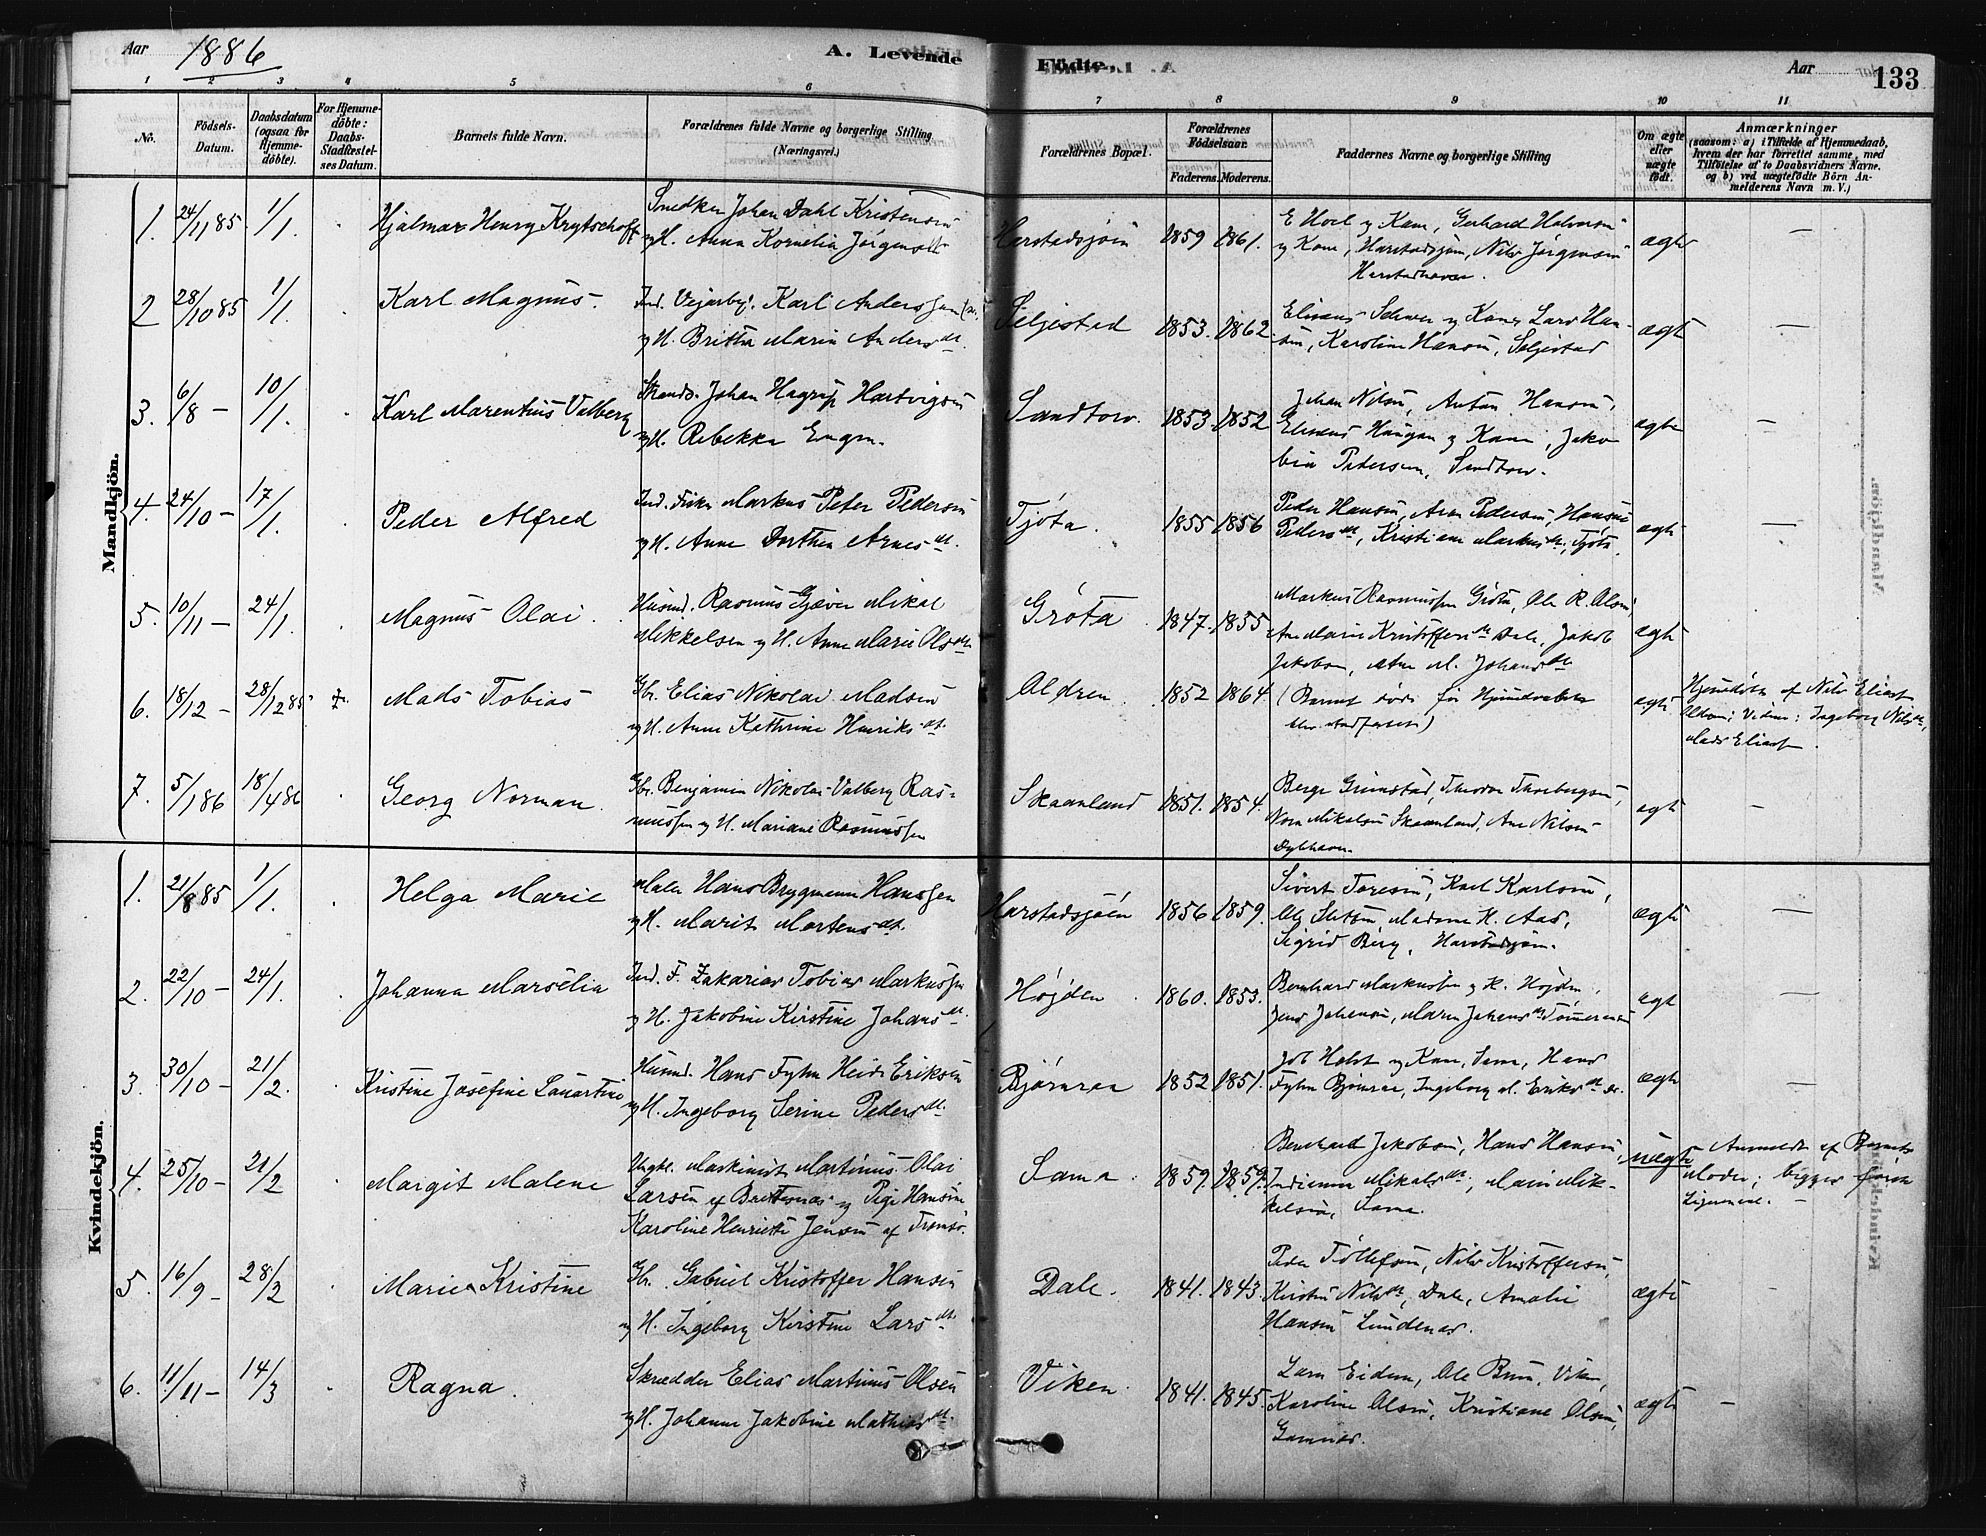 Aar 1886 A. Levende Födte. Aar 133
1 2 3 4 5 6 7 8 9 10 11
No.
Födsels-Datum.
Daabsdatum (ogsaa for Hjemme-döbte).
For Hjemme-döbte: Daabs-Stadfæstel-ses Datum.
Barnets fulde Navn.
Forældrenes fulde Navne og borgerlige Stilling
(Næringsvei.)
Forældrenes Bopæl.
Forældrenes Födselsaar.
Faderens. Moderens.
Faddernes Navne og borgerlige Stilling
Om ægte eller uægte födt.
Anmærkninger
(saasom: a) i Tilfælde af Hjemmedaab, hvem der har forrettet samme, med Tilföielse af to Daabsvidners Navne, og b) ved uægtefödte Börn Anmelderens Navn m. V.)
Mandkjön.
1. 24/11 85 1/1. Hjalmar Henry Krytschoff
Snedker Johan Dahl Kristensen
og H. Anna Kornelia Jörgensdtr
Harstadsjöen 1859 1861.
E Hoel og Kone, Gerhard Halvorsen
og Kone, Harstadsjöen, Nils Jörgensen
Harstadhavn.
ægte —
2 28/10 85 1/1. Karl Magnus.
Ind. Vejarb. Karl Anderssen
og H. Britta Maria Andersdt.
Seljestad 1853. 1862
Kone Lars Han-
sen, Karoline Hansen, Seljestad
ægte —
3. 6/8 – 10/1. Karl Marentius Valberg
Strands. Johan Hagrup Hartvigsen
og H. Rebekka Engen.
Sandtorv. 1853. 1852
Johan Nilsen, Anton Hansen,
Elisæus Haugan og Kone, Jako-
bine Pedersen, Sandtorv.
ægte —
4. 24/10 – 17/1. Peder Alfred
Ind. Fisker Markus Peter Pedersen
og H. Anne Dorthea Arnesdt.
Tjöta. 1855 1856
Peder Hansen, Arn Pedersen, Hansine
Pedersdt, Kristiane Markusdt, Tjöta.
ægte —
5. 10/11 – 24/1. Magnus Olai.
Husmd. Rasmus Gjæver Mikal
Mikkelsen og H. Anne Marie Olsdtr
Gröta. 1847. 1855
Markus Rasmussen Gröta, Ole R. Olsen,
Ane Marie Kristoffersdt Dale, Jakob
Jakobsen, Ane M. Johansdt
ægte
6. 18/12 – 28/12 85. Mads Tobias
Gbr. Elias Nikolai Madsen
og H. Anne Kathrine Henriksdt.
Aldren. 1852 1864.
(Barnet döde før Hjemmedaaben
blev stadfæstet)
ægte
Hjemdöbt af Nils Eliass.
Aldren; Vidner: Ingeborg Nilsdt,
Mads Eliass.
7. 5/1 86 18/4 86 Georg Norman.
Gbr. Benjamin Nikolai Valberg Ras-
mussen og H. Mariane Rasmussen
Skaanland 1851. 1854.
Berge Grimstad, Theodor Thorbergsen,
Nora Mikalsen Skaanland, Ane Nilsen
Dybhavn.
ægte —
Kvindekjön.
1. 21/8 85 1/1. Helga Marie
Maler Hans Brygmann Hanssen
og H. Marit Martensdt.
Harstadsjöen 1856 1859.
Sivert Toresen, Karl Karlsen,
Ole Slettan, Madame H. Aas,
Sigrid Berg, Harstadsjöen.
ægte —
2. 22/10 – 24/1. Johanna Marselia
Ind. F. Zakarias Tobias Markussen
og H. Jakobine Kirstine Johansdt.
Höjden. 1860. 1853.
Bernhard Markussen og H. Höjden.
Jens Johansen, Maren Johansdt
ægte —
3. 30/10 – 21/2. Kristine Josefine Lauartine
Husmd. Hans Fyhn Heide Eriksen
og H. Ingeborg Serine Pedersdt.
Björnraa 1852 1851.
Job Holst og Kone, Sama, Hans
Fyhn Björnraa, Ingeborg M. Eriksdt
ægte —
4. 25/10 – 21/2 Margit Malene
Ungk. Maskinist Martinus Olai
Larsen af og Pige Hansine
Karoline Henriette Jensen af Tromsö.
Sama. 1859. 1859.
Bernhard Jakobsen, Hans Hansen,
Indianna Mikalsdt, Maren Mik-
kelsen, Sama.
uægte
Anmeldt af Barnets
Moder; begges første
Leiermaal. —
5. 16/9 – 28/2 Marie Kristine
Gbr. Gabriel Kristoffer Hansen
og H. Ingeborg Kirstine Larsdt.
Dale. 1841. 1843.
Peder Tollefsen, Nils Kristoffersen,
Kirsten Nilsdt, Dale, Amalie
Hansen Lundenes.
ægte —
6. 11/11 – 14/3 Ragna.
Skrædder Elias Martinus Olsen
og H. Johanne Jakobine Mathiasdt.
Viken. 1841. 1845.
Lars Eidem, Ole Bruu, Viken,
Karoline Olsen, Kristiane Olsen,
Gamnes.
ægte —